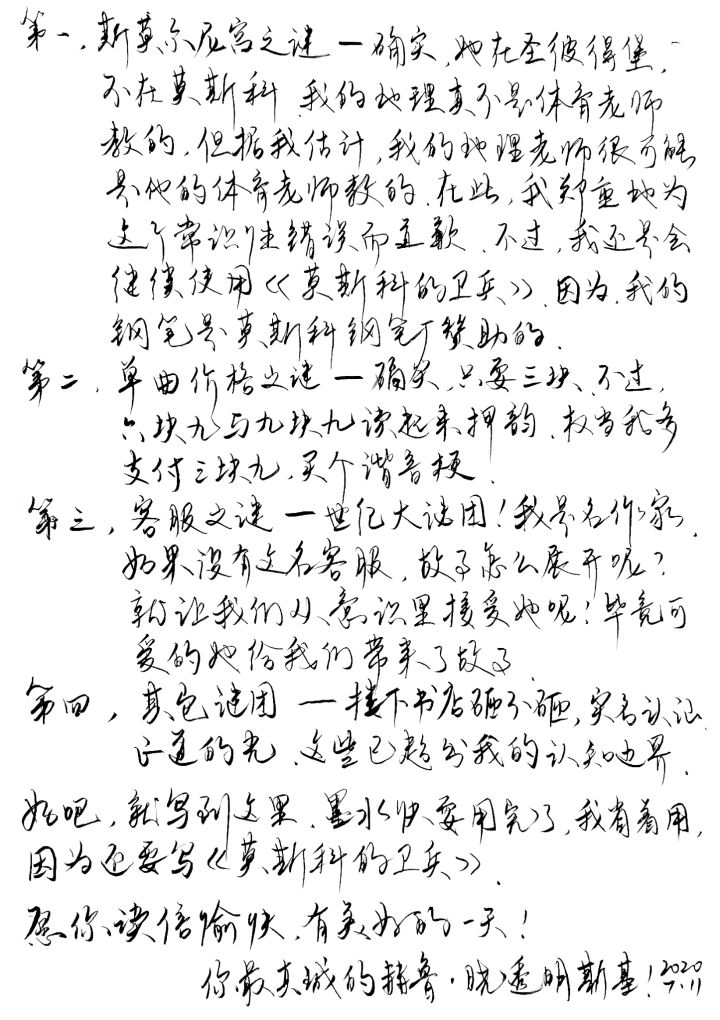 第一，斯莫尔尼宫之谜一确实，她在圣彼得堡，
不在莫斯科．我的地理真不是体育老师
教的，但据我估计，我的地理老师很可能
是他的体育老师教的．在此，我郑重地为
这个常识性错误而道歉．不过，我还是会
继续使用《莫斯科的卫兵》．因为，我的
钢笔是莫斯科钢笔厂赞助的．
第二，单曲价格之谜一确实，只要三块．不过，
六块九与九块九读起来押韵．权当我多
支付三块九，买个谐音梗．
第三，客服之谜一世纪大谜团！我是名作家，
如果没有这名客服，故事怎么展开呢？
就让我们从意识里接受她呢！毕竟可
爱的她给我们带来了故事．
第四，其它谜团一楼下书店砸不砸，实名认证，
正道的光．这些已超出我的认知边界．
好吧，就写到这里．墨水快要用完了，我省着用，
因为还要写《莫斯科的卫兵》．
愿你读信愉快，有美好的一天！
你最真诚的赫鲁·晓透明斯基！2020
7.11